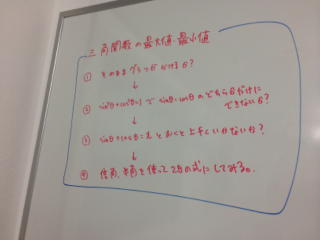 三角関数の最大値・最小値
① そのままグラフがかける？
↓
② sin²θ+cos²θ=1 で sinθ・cosθ のどちらかだけに
できない？
↓
③ sinθ+cosθ=t とおくと上手くいかない？
↓
④ 倍角、半角を使って2θの式にしてみる。